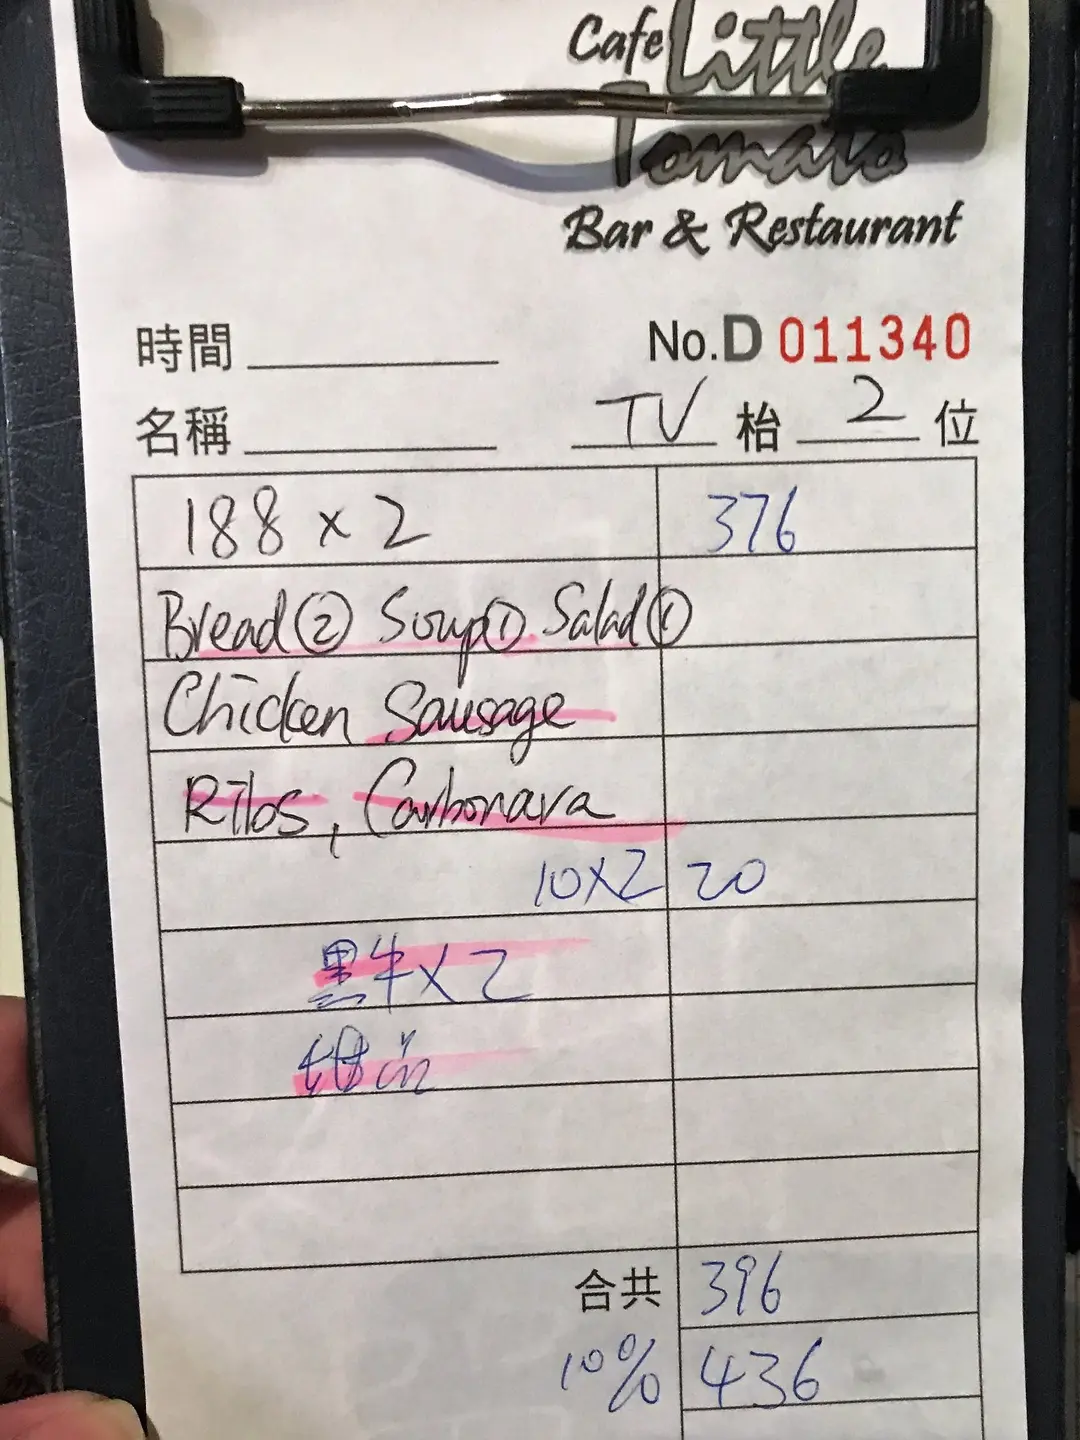 Cafe Little
Tomato
Bar & Restaurant
時間
No. D 011340
名稱 TV 枱 2 位
188 x 2 376
Bread ② Soup ① Salad ①
Chicken Sausage
Ribs, Carbonara
10x2 20
黑牛 x 2
甜品
合共 396
10% 436